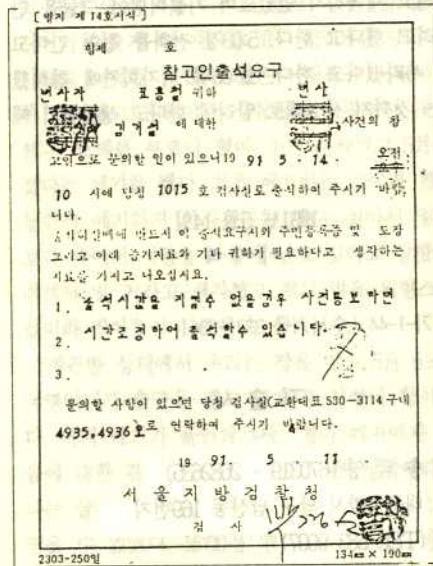 [별지 제14호서식]
형제 호
참고인출석요구
변사자 귀하 변사
김기설 에 대한 사건의 참
고인으로 문의할 일이 있으니 19 91 5 . 14 . 오전
10 시에 당청 1015 호 검사실로 출석하여 주시기 바랍
니다.
반드시 이 출석요구서와 주민등록증 및 도장
그리고 아래 증거자료와 기타 귀하가 필요하다고 생각하는
자료를 가지고 나오십시요.
1. 출석시간을 지킬수 없을경우 사전통보하면
2. 시간조정하여 출석할수 있습니다.
3.
문의할 사항이 있으면 당청 검사실(교환대표 530-3114 구내
4935,4936호로 연락하여 주시기 바랍니다.
19 91. 5 . 11 .
서울지방검찰청
검 사
2303-250일 134㎜ × 190㎜